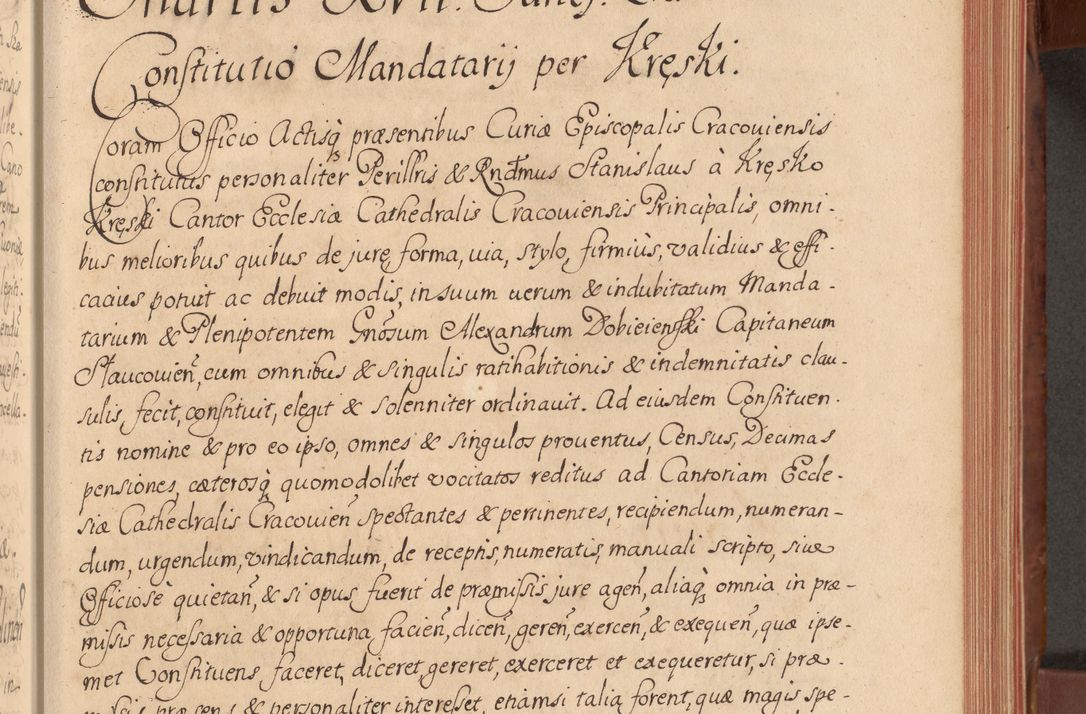 Constitutio Mandatarij per Kręski.
Coram Officio Actisq; præsentibus Curiæ Episcopalis Cracouiensis
constitutus personaliter Perillris & Rndmus Stanislaus à Kręsko
Kręski Cantor Ecclesiæ Cathedralis Cracouiensis Principalis, omni-
bus melioribus quibus de jure, forma, uia, stylo, firmius, validius & effi-
cacius potuit ac debuit modis, in suum uerum & indubitatum Manda-
tarium & Plenipotentem Gnosum Alexandrum Dobieienski Capitaneum
Staucouien, cum omnibus & singulis ratihabitionis & indemnitatis clau-
sulis, fecit, constituit, elegit & solenniter ordinauit. Ad eiusdem Constituen-
tis nomine & pro eo ipso, omnes & singulos prouentus, Census, Decimas
pensiones, cæterosq; quomodolibet vocitatos reditus ad Cantoriam Eccle-
siæ Cathedralis Cracouien spectantes & pertinentes, recipiendum, numeran-
dum, urgendum, vindicandum, de receptis, numeratis, manuali scripto, siue
Officiosè quietan, & si opus fuerit de præmissis jure agen, aliaq; omnia in præ-
missis necessaria & opportuna facien, dicen, geren, exercen, & exequen, quæ ipse-
met Constituens faceret, diceret, gereret, exerceret et exequeretur, si præ-
missis præsens & personaliter interesset, etiamsi talia forent, quæ magis spe-